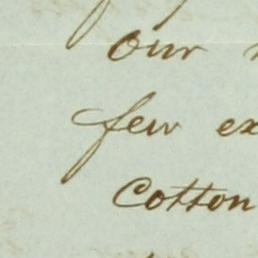 our
few ex
Cotton